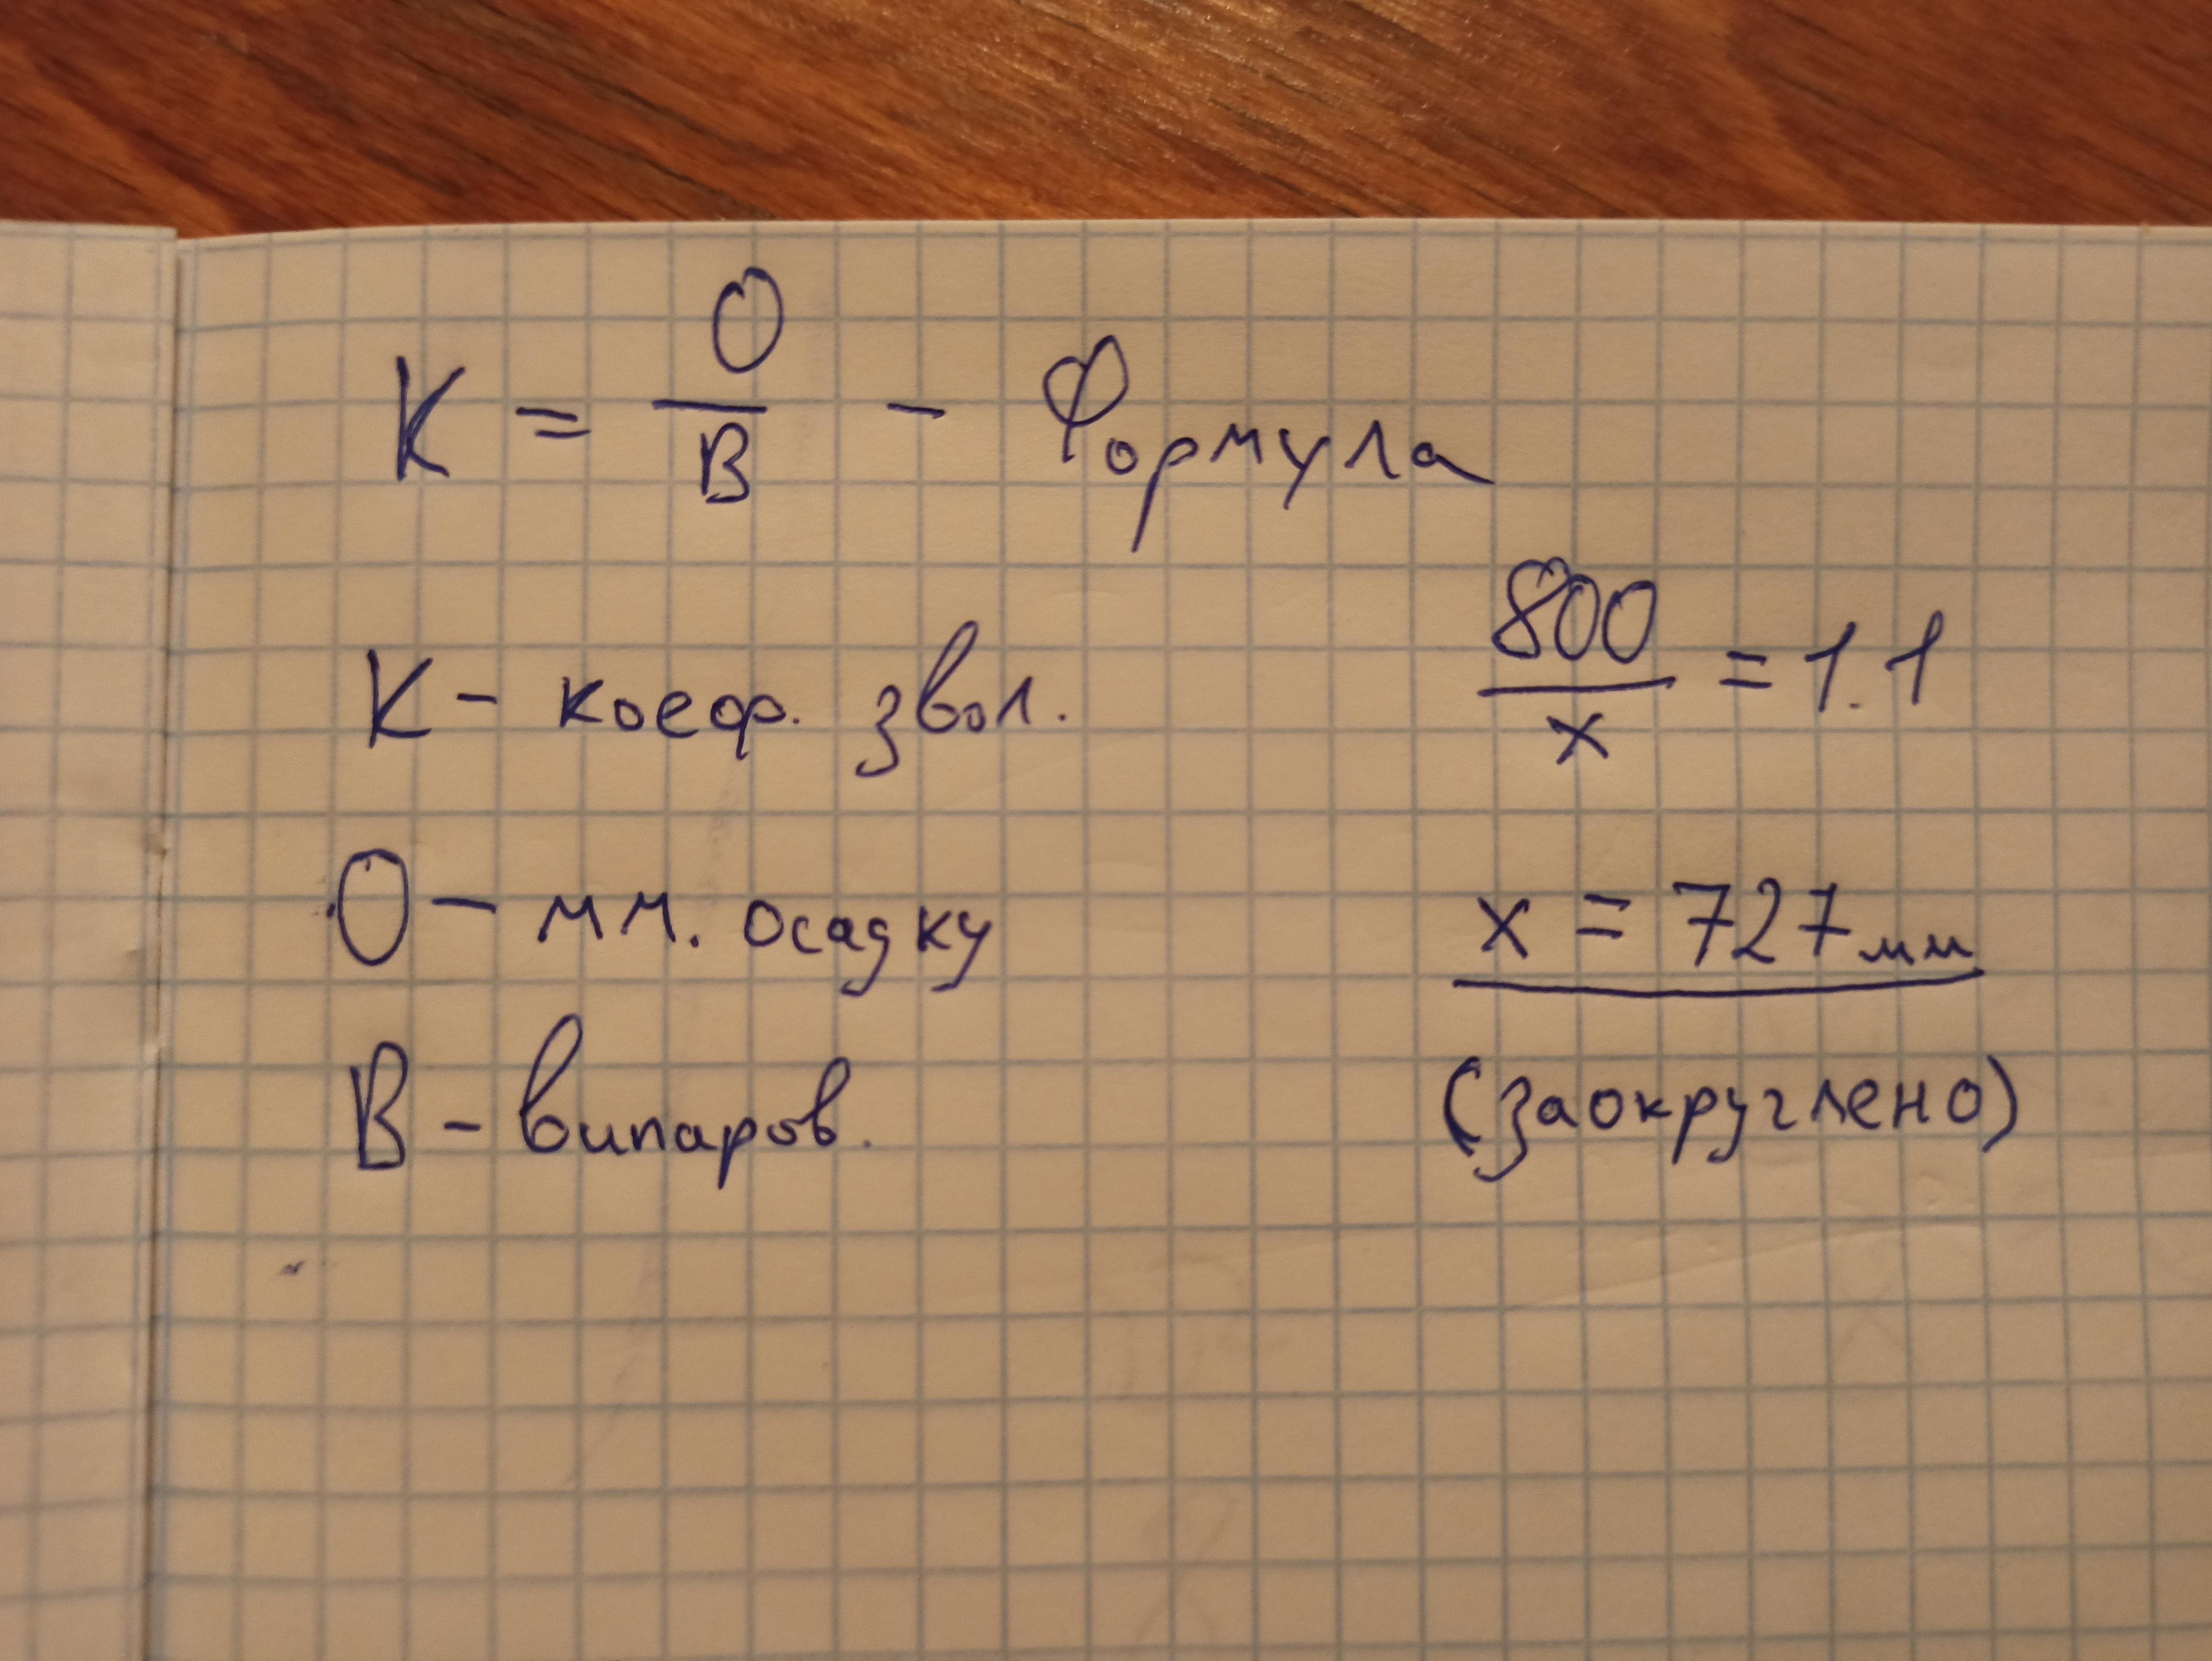 K = O/B - Формула
K - коеф. звол.
O - мм. осадку
B - випаров.
800/x = 1.1
x = 727 мм
(заокруглено)